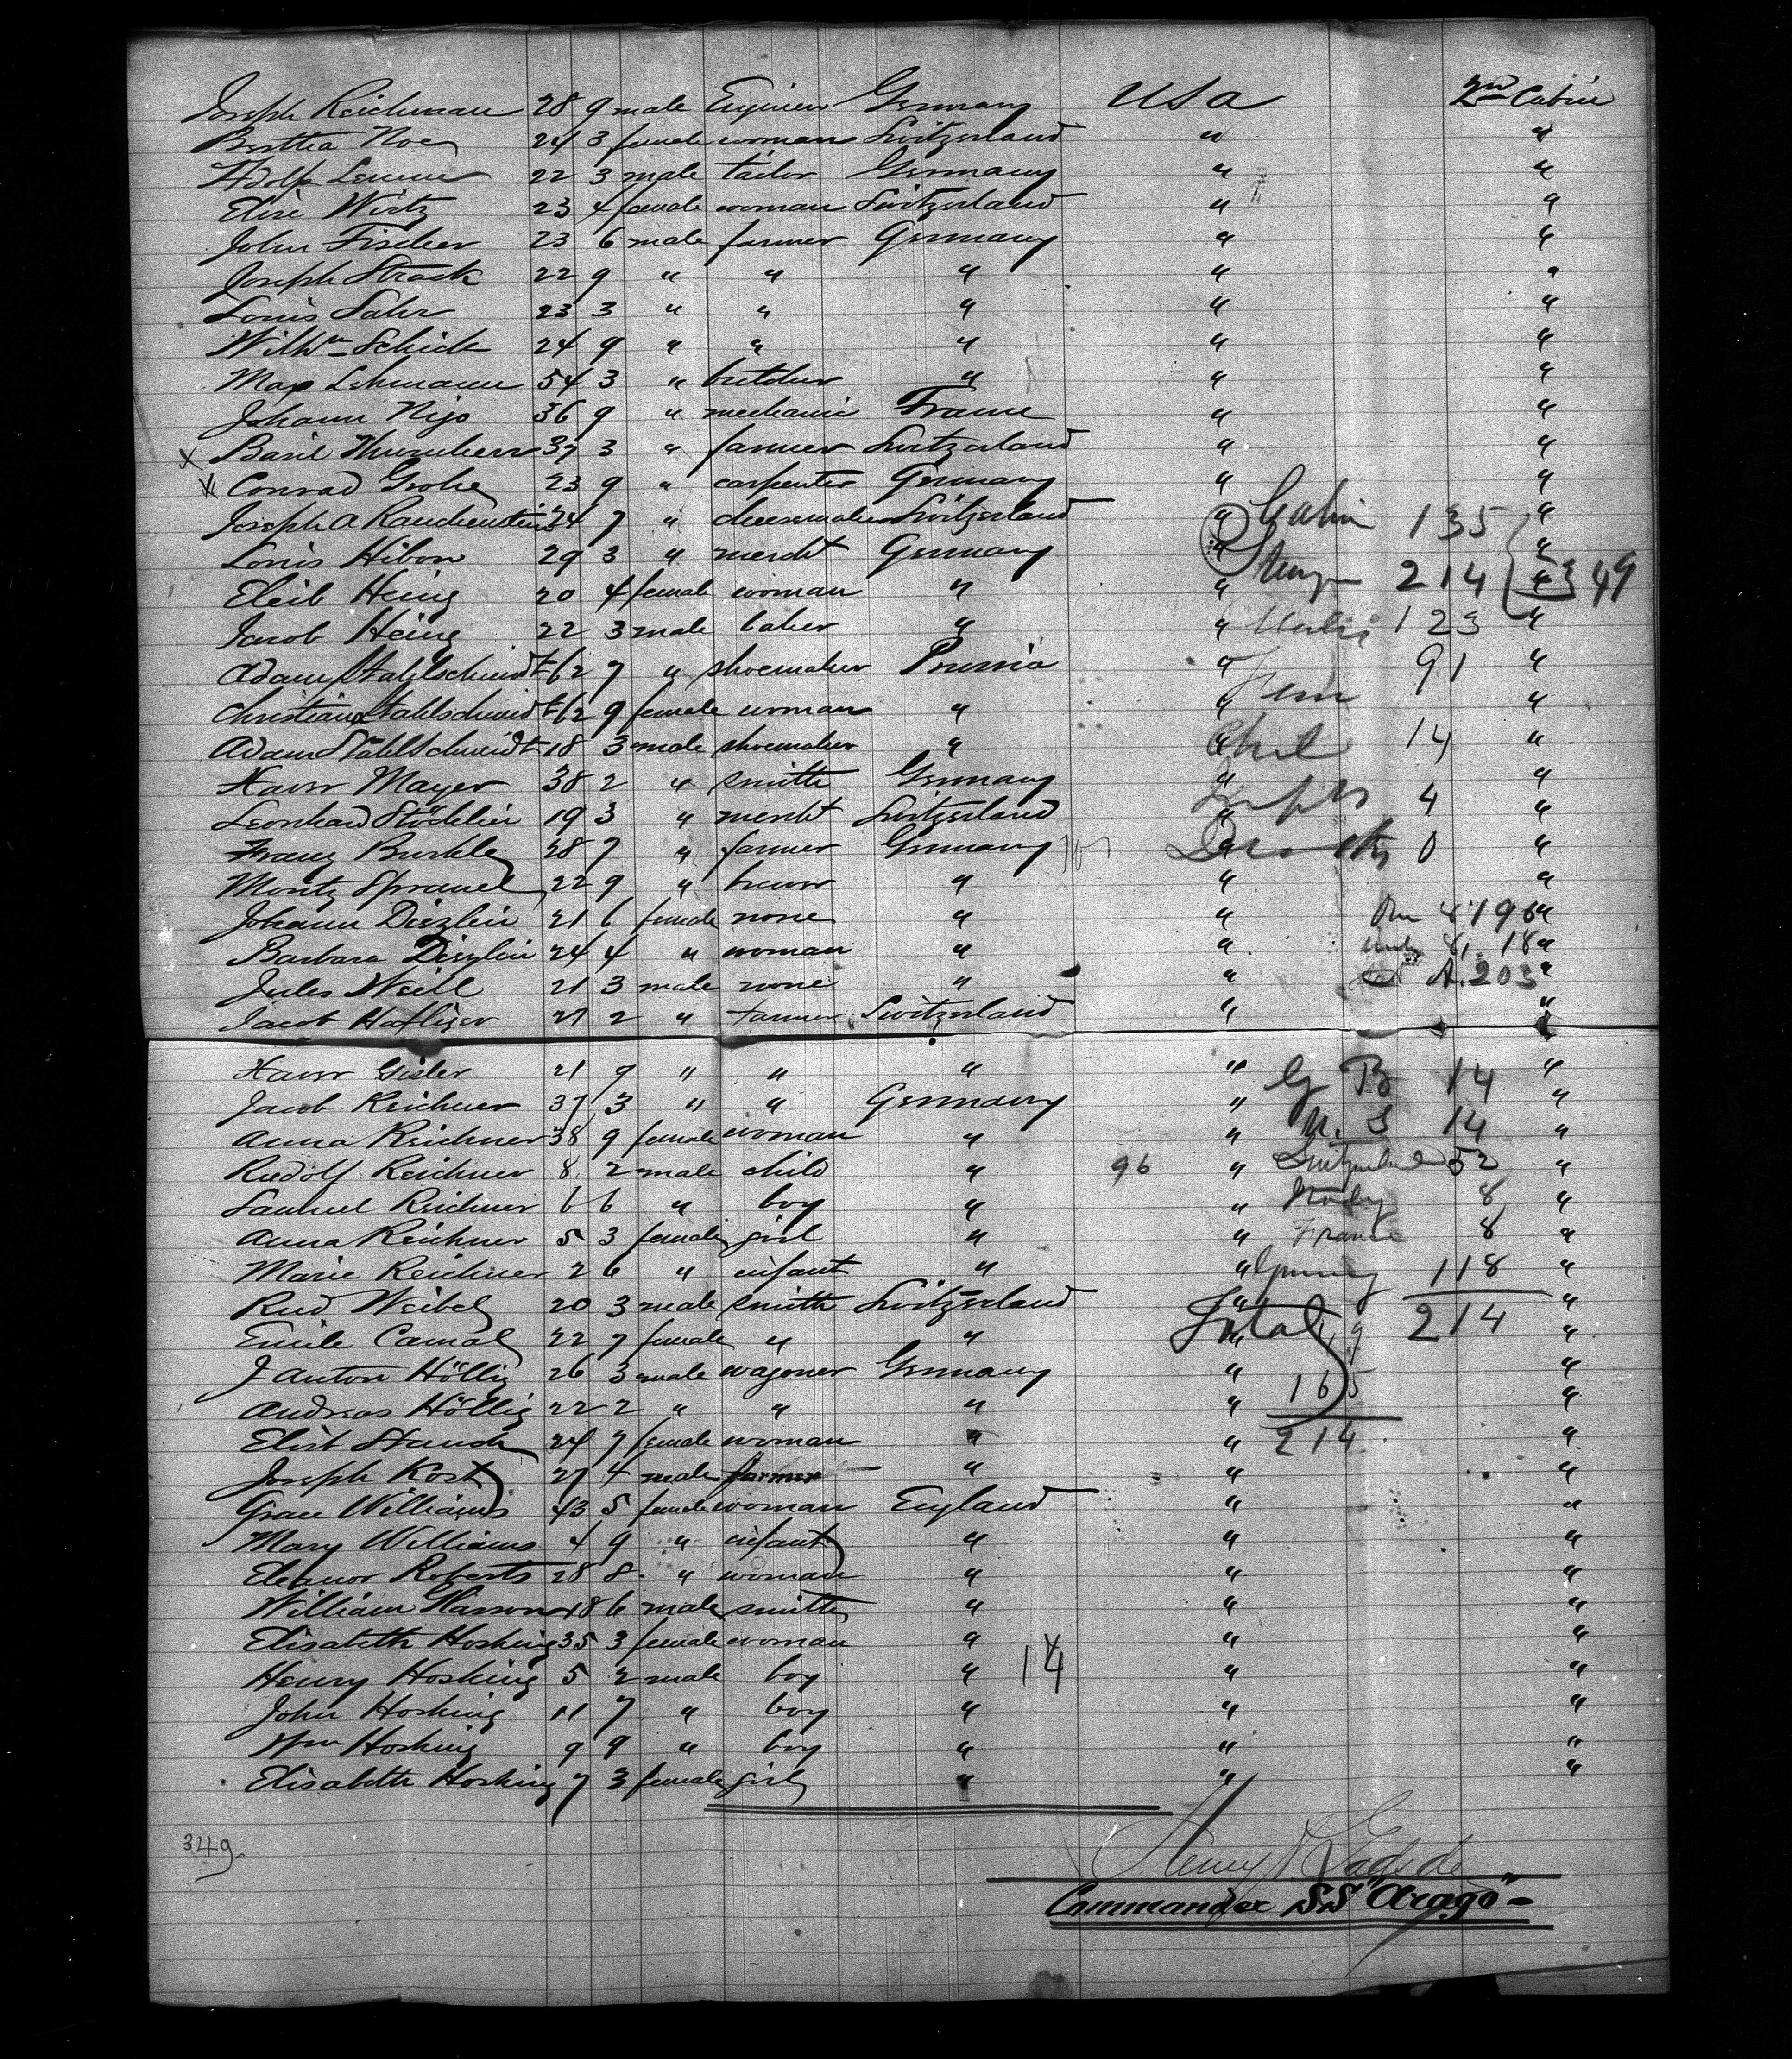 Joseph Reichmann 28 9 male Engineer Germany USA 2nd Cabin
Bertha Noe 24 3 female woman Switzerland " "
Adolf 22 3 male tailor Germany " "
Elise Wirtz 23 4 female woman Switzerland " "
John Fischer 23 6 male farmer Germany " "
Joseph Strack 22 9 " " " " "
Louis Sahr 23 3 " " " " "
Wilhm Schick 24 9 " " " " "
Max Lehmann 54 3 " butcher " " "
Johann Nigo 36 9 " mechanic France " "
x Basil 37 3 " farmer Switzerland " "
x Conrad Grohe 23 9 " carpenter Germany " "
Joseph A Rauchenstein 24 7 " cheesemaker Switzerland " Cabin 135 "
Louis Hibon 29 3 " mercht Germany " "
Elisb Heing 20 4 female woman " " 214 " 349
Jacob Heing 22 3 male baker " " Males 123 "
Adam Stahlschmidt 62 7 " shoemaker Prussia " 91 "
Christian Stahlschmidt 62 9 female woman " " Fem "
Adam Stahlschmidt 18 3 male shoemaker " " Chil 14 "
Xaver Mayer 38 2 " smith Germany " "
Leonhard Stöcklin 19 3 " mercht Switzerland " Infts 4 "
Franz Burkle 28 7 " farmer Germany " Deaths 0 "
Moritz Spranel 22 9 " brewer " " "
Johann Dizlein 21 6 female none " " "
Barbara Dizlein 24 4 " woman " " 18 "
Jules Weil 21 3 male none " " 203 "
Jacob Hafliger 27 2 " farmer Switzerland " "
Xaver Gisler 21 9 " " " " G B 14 "
Jacob Reichner 37 3 " " Germany " "
Anna Reichner 38 9 female woman " " U. S 14 "
Rudolf Reichner 8 2 male child " 96 " Switzerland 52 "
Samuel Reichner 6 6 " boy " " 8 "
Anna Reichner 5 3 female girl " " France 8 "
Marie Reichner 2 6 " infant " " Germany 118 "
Rud Weibel 20 3 male smith Switzerland " "
Emile Camal 22 7 female " " " Total 214 "
J Anton Höllig 26 3 male wagoner Germany " "
Andreas Höllig 22 2 " " " " 165 "
Elisb Stauch 24 7 female woman " " 214 "
Joseph Kost 27 4 male farmer " " "
Grace Williams 43 5 female woman England " "
Mary Williams 4 9 " infant " " "
Eleanor Roberts 28 8 " woman " " "
William 18 6 male smith " " "
Elisabeth Hosking 35 3 female woman " " "
Henry Hosking 5 2 male boy " 14 " "
John Hosking 11 7 " boy " " "
Wm Hosking 9 9 " boy " " "
Elisabeth Hosking 7 3 female girl " " "
349
Henry
Commander SS "Arago"